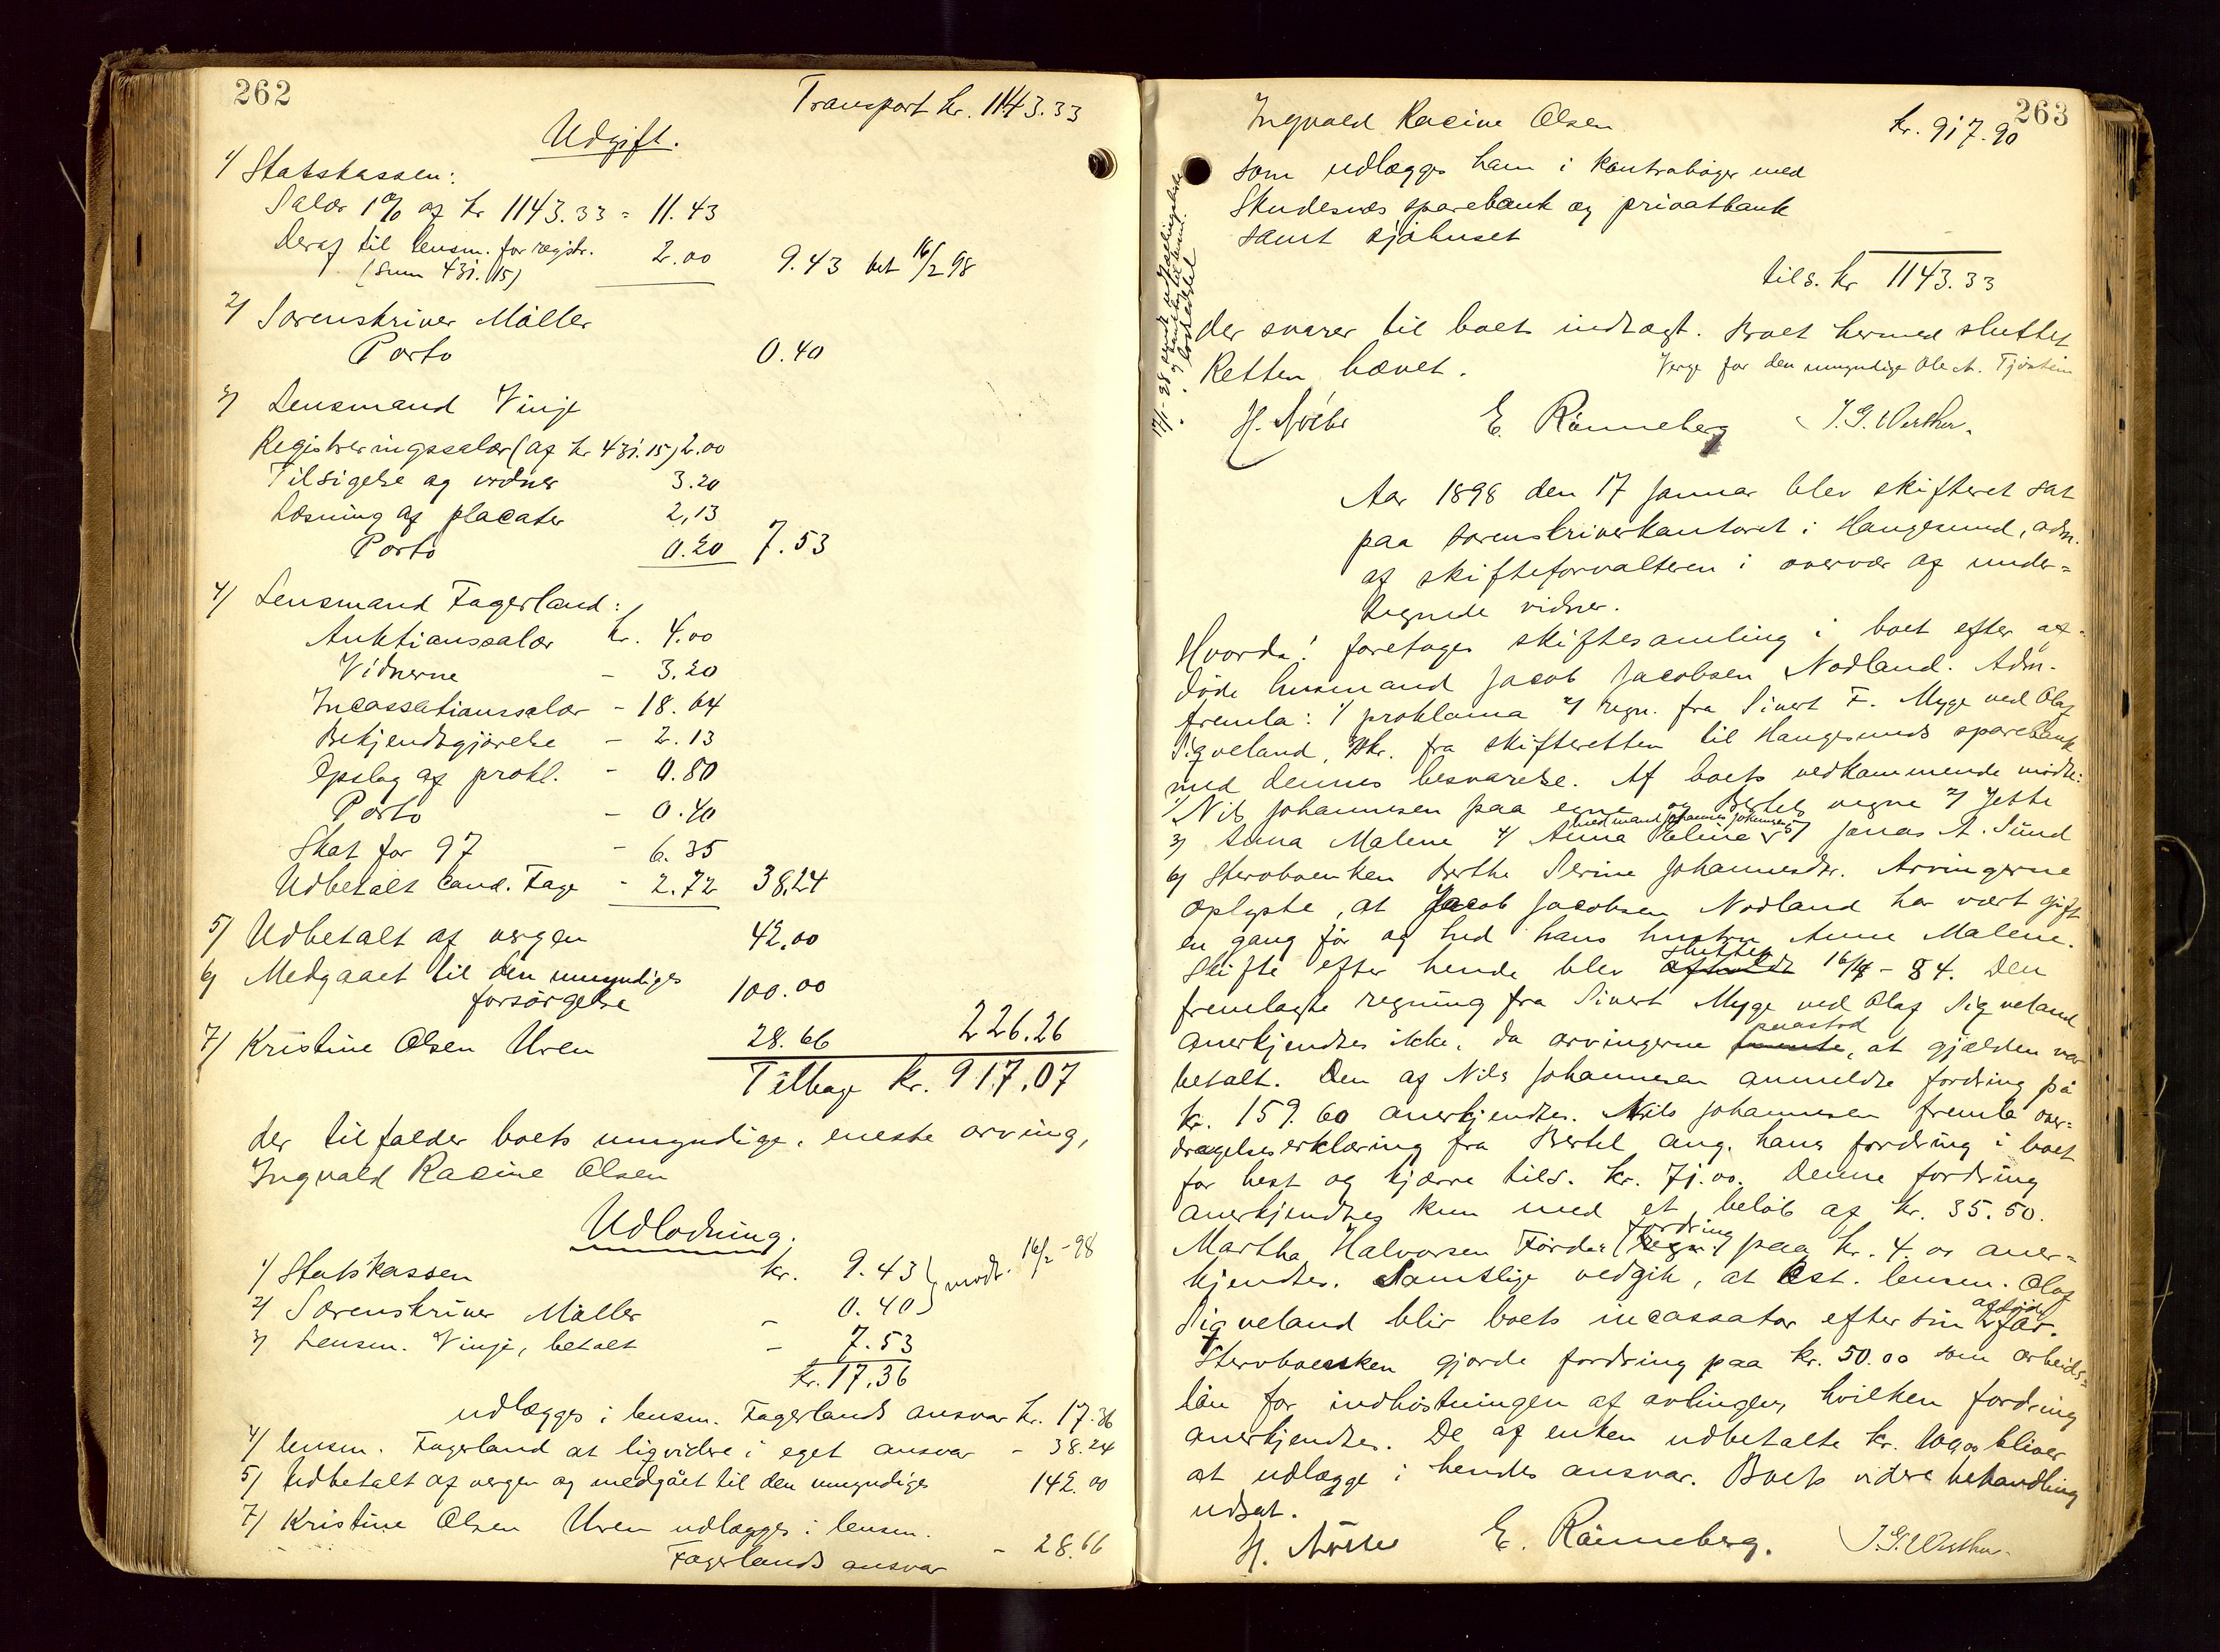 262
Transport kr. 1143.33
Udgift.
1/ Statskassen:
Salær 1% af kr 1143.33 = 11.43
Deraf til lensm. for registr. 2.00 9.43 bet 16/2 98
(Sum 431.15)
2/ Sorenskriver Møller
Porto 0.40
3/ Lensmand Vinje
Registreringssalær (af kr 431.15) 2.00
Tilsigelse og vidner 3.20
Læsning af placater 2,13
Porto 0.20 7.53
4/ Lensmand Fagerland:
Auktionssalær kr. 4.00
Vidnerne - 3.20
Incassationssalær - 18.64
Bekjendtgjørelse - 2.13
Opslag af prokl. - 0.80
Porto - 0.40
Skat for 97 - 6.35
Udbetalt cand. Fage - 2.72 38,24
5/ Udbetalt af vergen 42.00
6/ Medgaaet til den umyndiges
forsørgelse 100.00
7/ Kristine Olsen Uren 28.66 226.26
Tilbage kr. 917.07
der tilfalder boets umyndige, eneste arving,
Ingvald Racine Olsen
Udlodning.
1/ Statskassen kr. 9.43 } modt. 16/2 -98
2/ Sorenskriver Møller - 0.40
3/ Lensm. Vinje, betalt - 7.53
kr. 17,36
udlægges i lensm. Fagerlands ansvar kr. 17.36
4/ lensm. Fagerland at liqvidere i eget ansvar - 38.24
5/ Udbetalt af vergen og medgået til den umyndiges 142.00
7/ Kristine Olsen Uren udlægges i lensm.
Fagerlands ansvar - 28.66
263
Ingvald Racine Olsen kr. 917.90
som udlægges ham i kontrabøger med
Skudesnæs sparebank og privatbank
samt sjøhuset
tils. kr 1143.33
der svarer til boets indtægt. Boet hermed sluttet
Retten hævet. Verge for den umyndige Ole A. Tjøstein
E. Rönneberg J. G. Wærther.
Aar 1898 den 17 januar blev skifteret sat
paa sorenskriverkontoret i Haugesund, adm.
af skifteforvalteren i overvær af under=
tegnede vidner.
Hvorda: foretoges skiftesamling i boet efter af=
døde husmand Jacob Jacobsen Nodland. Adm.
fremla: 1/ proklama 2/ regn. fra Sivert F. Myge ved Olaf
Sigveland, skr. fra skifteretten til Haugesunds sparebank
med dennes besvarelse. Af boets vedkommende mødte:
1/ Nils Johannesen paa egne og Bertels vegne 2/ Jette
med mand Johannes Johannesen
3/ Anna Malene 4/ Anna Eline 5/ Jonas A. Sund
6/ Stervboenken Berthe Serine Johannesdtr. Arvingerne
oplyste, at Jacob Jacobsen Nodland har vært gift
en gang før og hed hans hustru Anne Malene.
sluttet
Skifte efter hende blev afholdt 16/12 - 84. Den
fremlagte regning fra Sivert Myge ved Olaf Sigveland
paastod
anerkjendtes ikke, da arvingerne mente, at gjælden var
betalt. Den af Nils Johannesen anmeldte fordring på
kr. 159.60 anerkjendtes. Nils Johannesen fremla over=
dragelseserklæring fra Bertel ang. hans fordring i boet
for hest og kjærre tils. kr. 71.00. Denne fordring
anerkjendtes kun med et beløb af kr. 35.50.
fordring
Martha Halvorsen Førdes (regn.) paa kr. 4.00 aner=
kjendtes. Samtlige vedgik, at Kst. lensm. Olaf
afdøde
Sigveland blir boets incassator efter sin far.
Stervboenken gjorde fordring paa kr. 50.00 som arbeids=
løn for indhøstningen af avlingen, hvilken fordring
anerkjendtes. De af enken udbetalte kr. bliver
at udlægge i hendes ansvar. Boets videre behandling
udsat.
E. Rönneberg. J. G. Wærther.